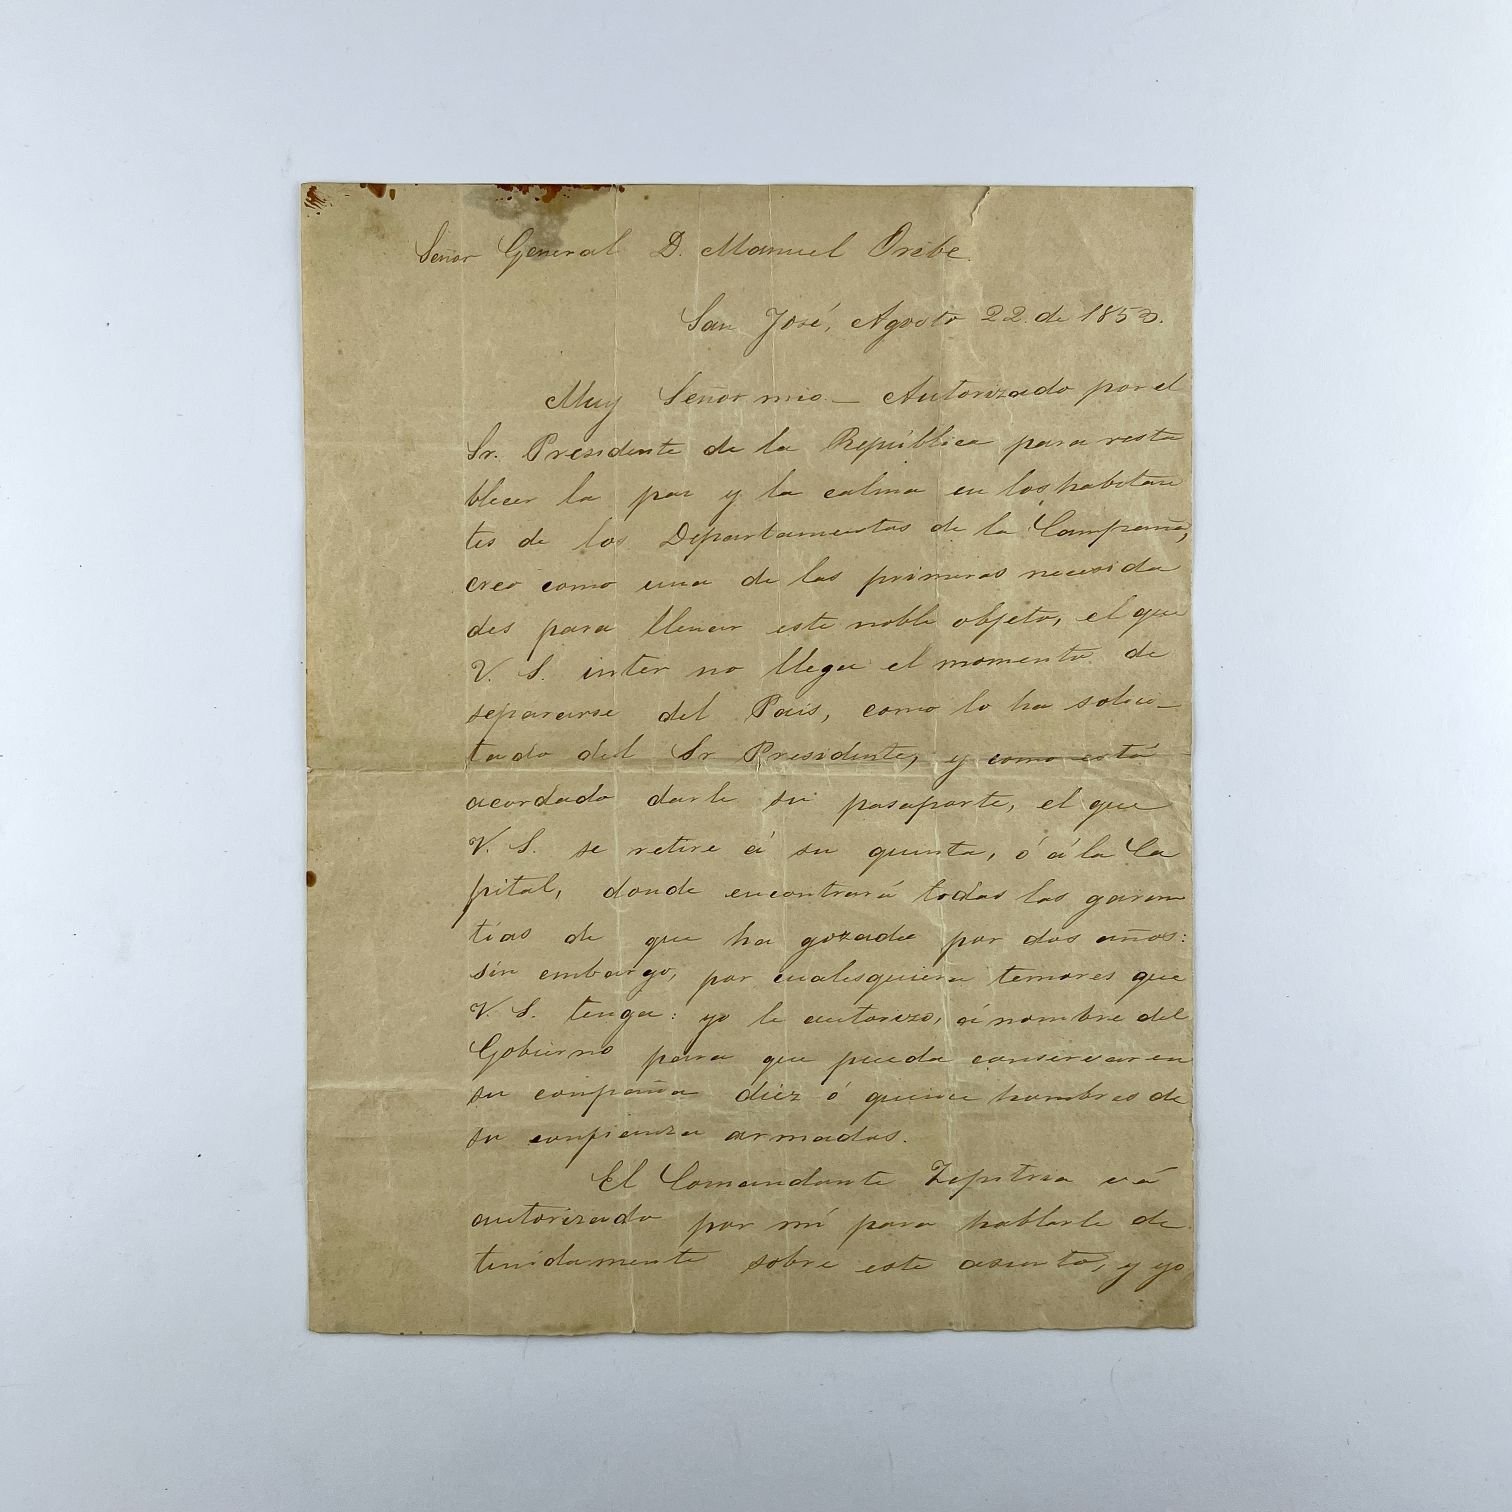 Señor General D. Manuel Oribe.
San José, Agosto 22. de 1853.
Muy Señor mio — Autorizado por el
Sr. Presidente de la República para resta
blecer la paz y la calma en los habitan
tes de los Departamentos de la Campaña,
creo como una de las primeras necesida
des para llenar este noble objeto, el que
V. S. inter no llega el momento de
separarse del Pais, como lo ha solici—
tado del Sr Presidente, y como está
acordado darle su pasaporte, el que
V. S. se retire á su quinta, ó á la Ca
pital, donde encontrará todas las garan
tías de que ha gozado por dos años:
sin embargo, por cualesquiera temores que
V. S. tenga: yo le autorizo, á nombre del
Gobierno para que pueda conservar en
su compañia diez ó quince hombres de
su confianza armados.
El Comandante Zipitria vá
autorizado por mí para hablarle de
tenidamente sobre este asunto, y yo